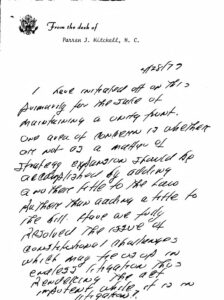 From the desk of
Parren J. Mitchell, M. C.
I have initialed off on this
primarily for the sake of
maintaining a unity front.
One area of concern is whether
or not as a matter of
strategy expansion should be
accomplished by adding
another title to the law
rather than adding a title to
the bill. Have we fully
resolved the issue of
constitutional challenges
which may tie us up in
endless litigation thus
rendering the act
impotent while it is in
litigation?